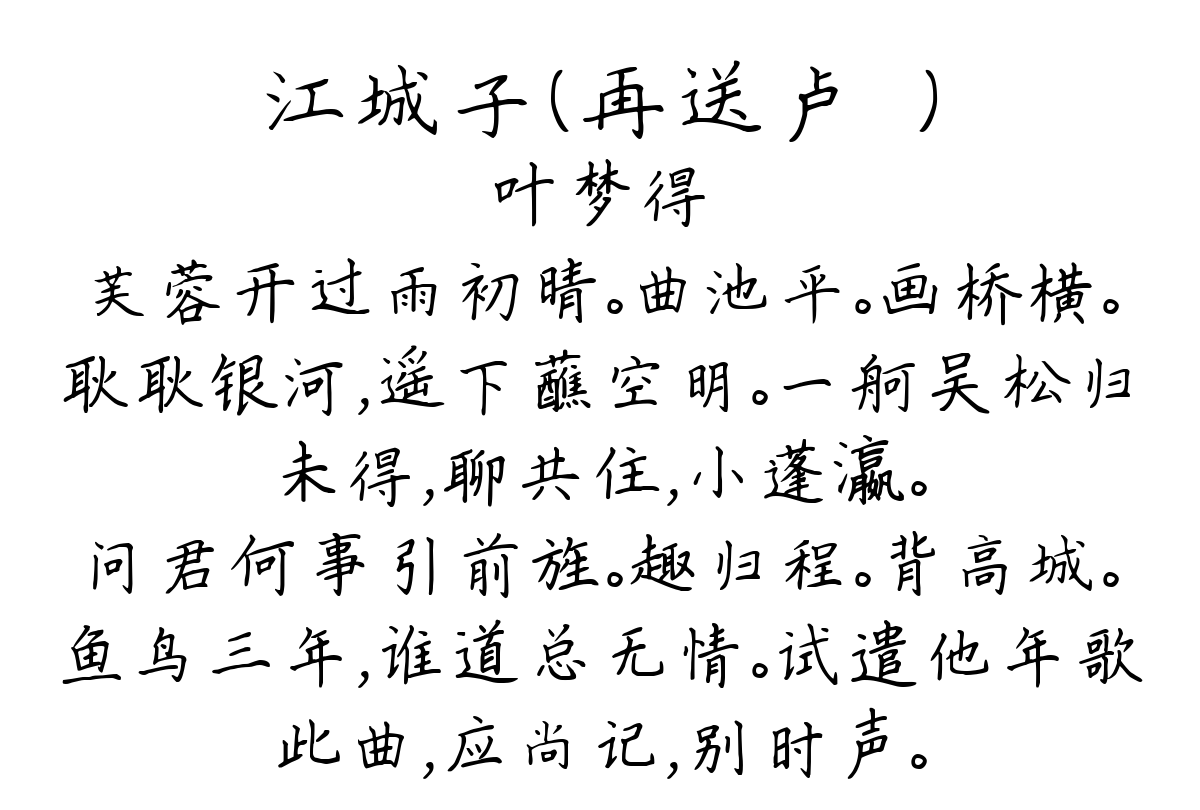 江城子(再送卢 )
叶梦得
芙蓉开过雨初晴。曲池平。画桥横。
耿耿银河,遥下蘸空明。一舸吴松归
未得,聊共住,小蓬瀛。
问君何事引前旌。趣归程。背高城。
鱼鸟三年,谁道总无情。试遣他年歌
此曲,应尚记,别时声。